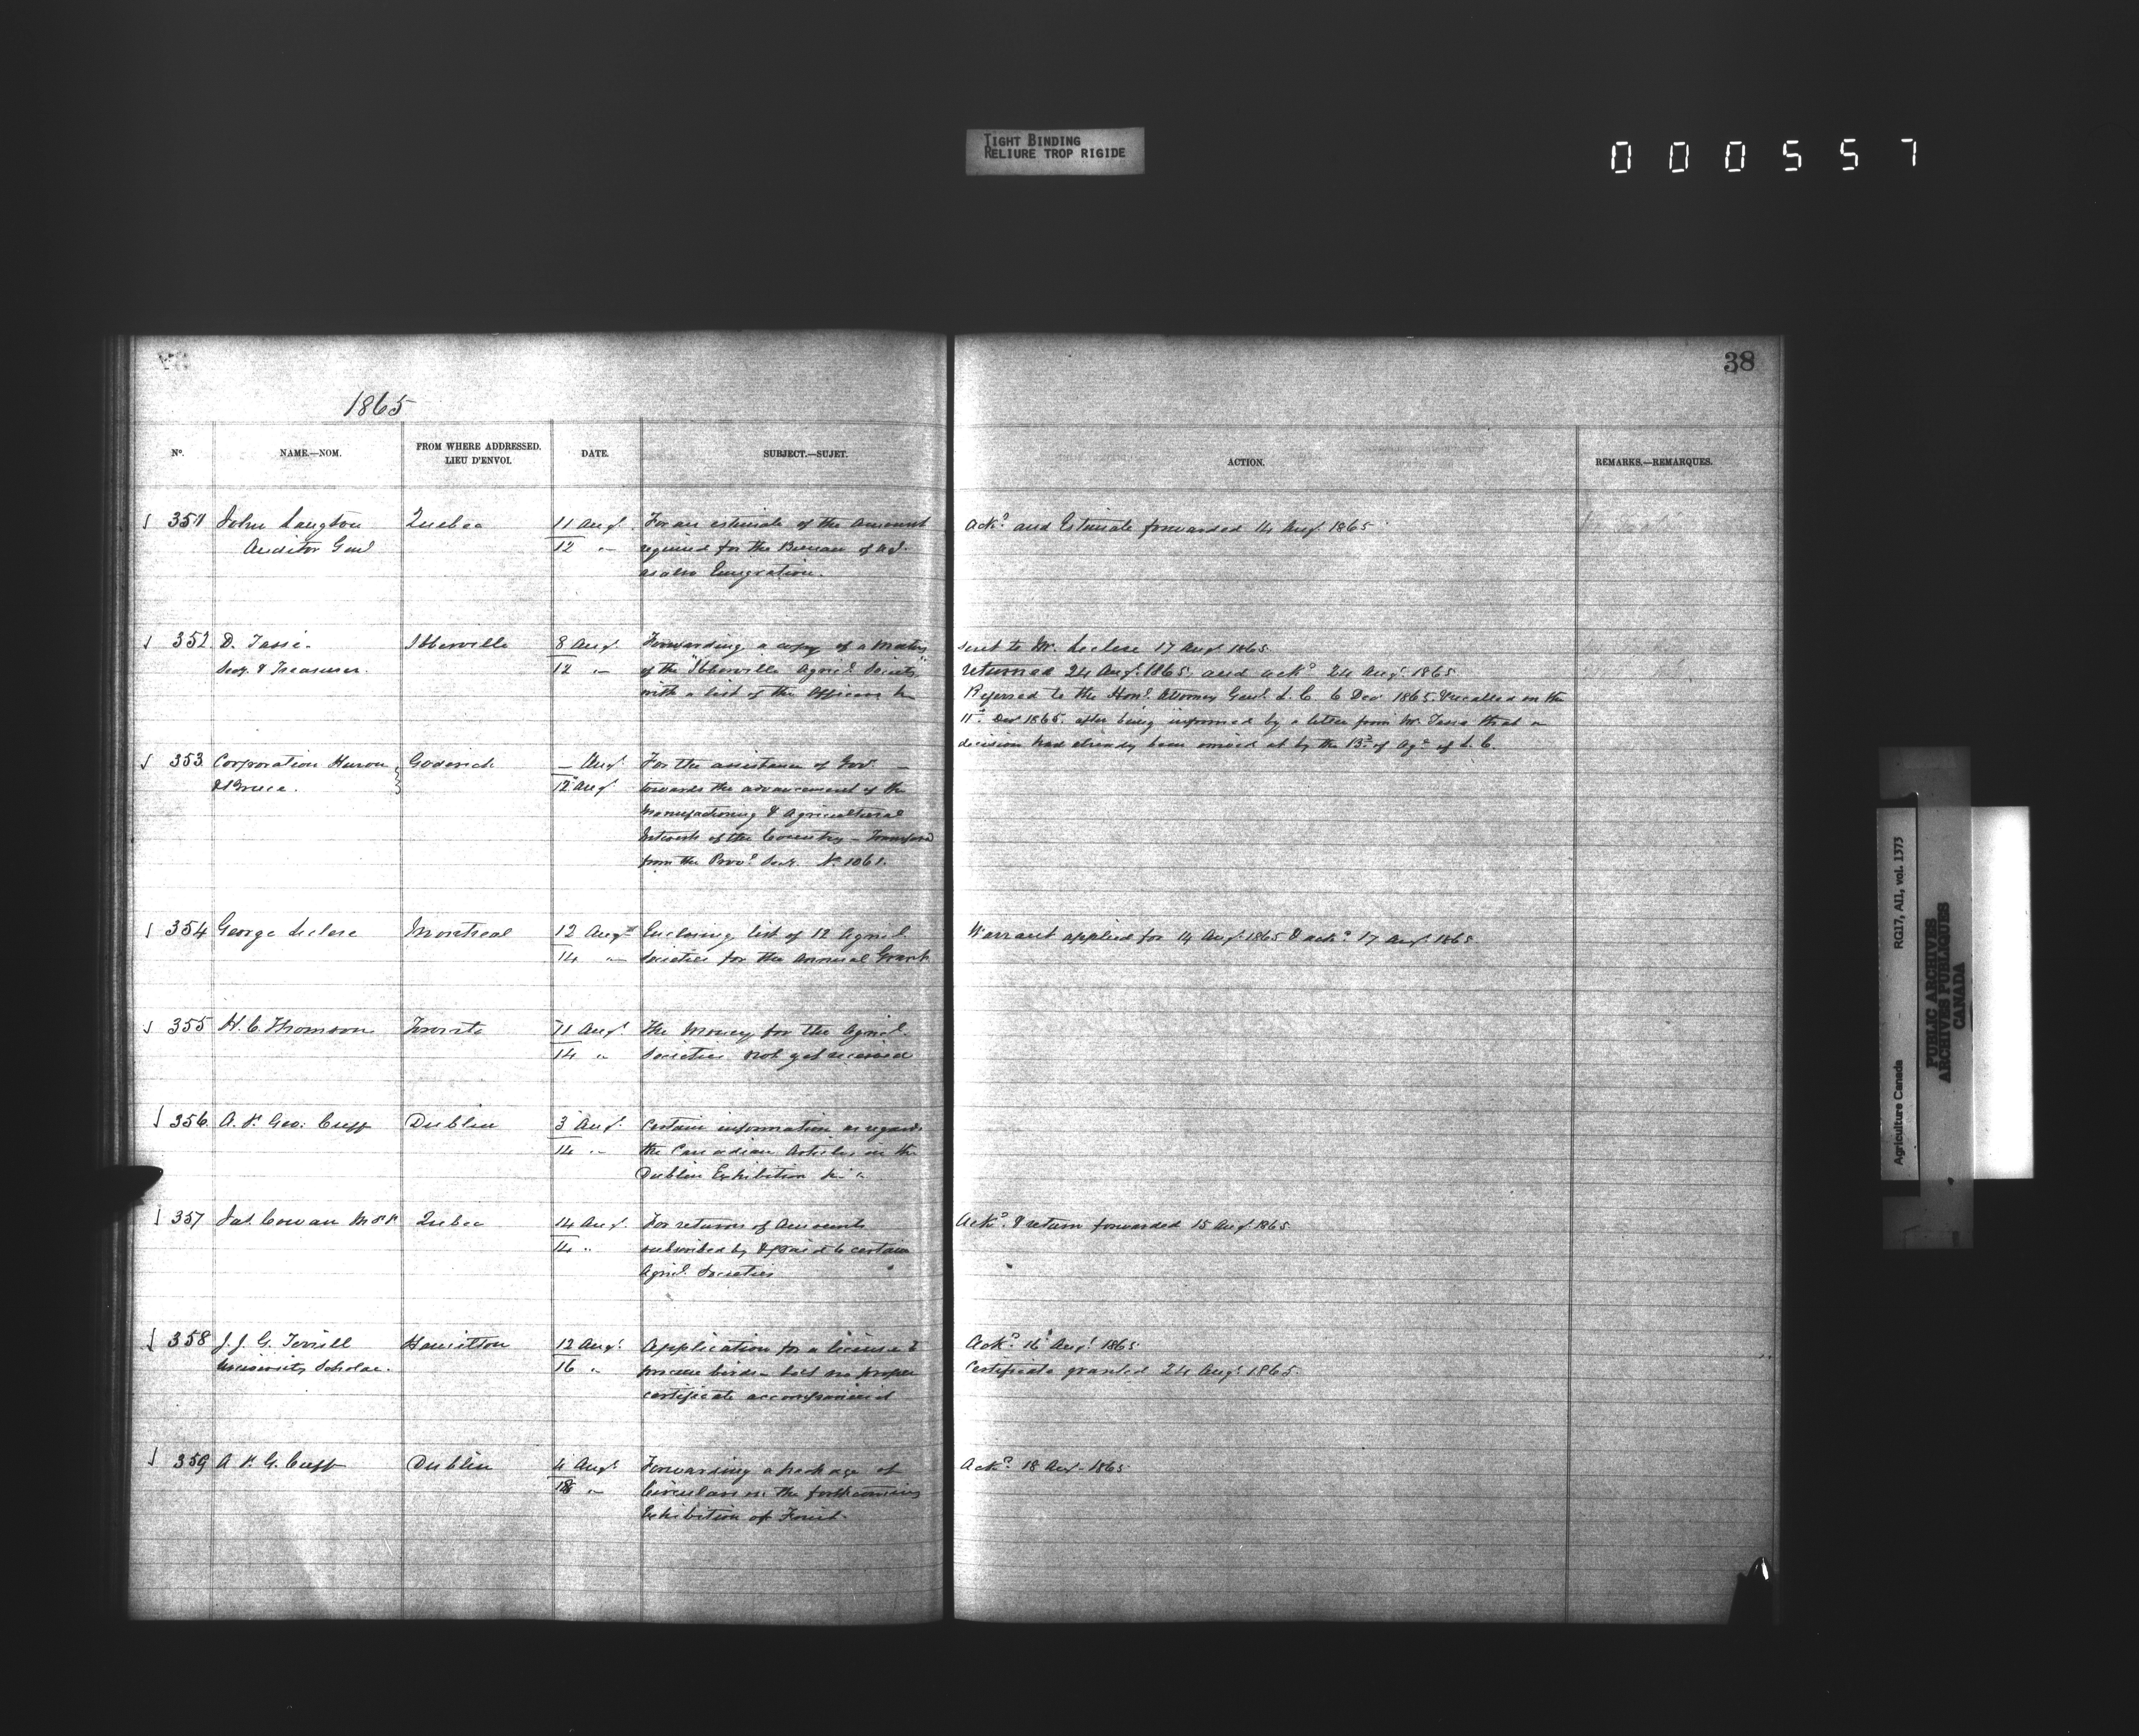 TIGHT BINDING
RELIURE TROP RIGIDE
000557
38
1865
No. NAME.—NOM. FROM WHERE ADDRESSED. LIEU D'ENVOI. DATE. SUBJECT.—SUJET. ACTION. REMARKS.—REMARQUES.
351 John Langton Quebec 11 Augt. For an estimate of the amount Ackd. and Estimate forwarded 14 Augt. 1865
Auditor Genl 12 " required for the Bureau of
as also Emigration.
352 D. Tassé Iberville 8 Augt. Forwarding a copy of a sent to Mr. Leclere 17 Augt. 1865.
Secy. & Treasurer. 12 " of the "Iberville Agricl. Society" returned 24 Augt. 1865. and ackd 24 Augt. 1865.
with a list of the Officers Referred to the Honl. Attorney Genl. L. C. 6 Decr 1865. & recalled on the
11th. Decr 1865. after being informed by a letter from Mr. Tassé that a
decision had already been arrived at by the Bd. of Agre. of L. C.
353 Corporation Huron Goderich — Augt. For the assistance of Govt. —
& Bruce. 12 Augt towards the advancement of the
Manufactoring & Agricultural
Interests of the Country —
from the Provl. Secy. No. 1061.
354 George Leclere Montreal 12 Augt Enclosing list of 12 Agricl. Warrant applied for 14 Augt. 1865 & ackd. 17 Augt. 1865.
14 " Societies for the Annual Grant
355 H. C. Thomson Toronto 11 Augt. The Money for the Agricl.
14 " Societies not yet received
356 A. P. Geo. Cuff Dublin 3 Augt. Certain information as regards
14 " the Canadian Articles in the
Dublin Exhibition
357 Jas. Cowan M.P.P. Quebec 14 Augt. For returns of Amounts Ackd. & return forwarded 15 Augt. 1865
14 " subscribed by & paid to certain
Agricl. Societies
358 J. J. G. Terrill Hamilton 12 Augt. Application for a license to Ackd. 16 Augt. 1865.
University Scholar. 16 " procure birds — but no proper Certificate granted 24 Augt. 1865.
certificate accompanied
359 A. P. G. Cuff Dublin 4 Augt. Forwarding a package of Ackd. 18 Augt. 1865
18 " Circulars the forthcoming
Exhibition of
Agriculture Canada RG17, AII, vol. 1373
PUBLIC ARCHIVES
ARCHIVES PUBLIQUES
CANADA